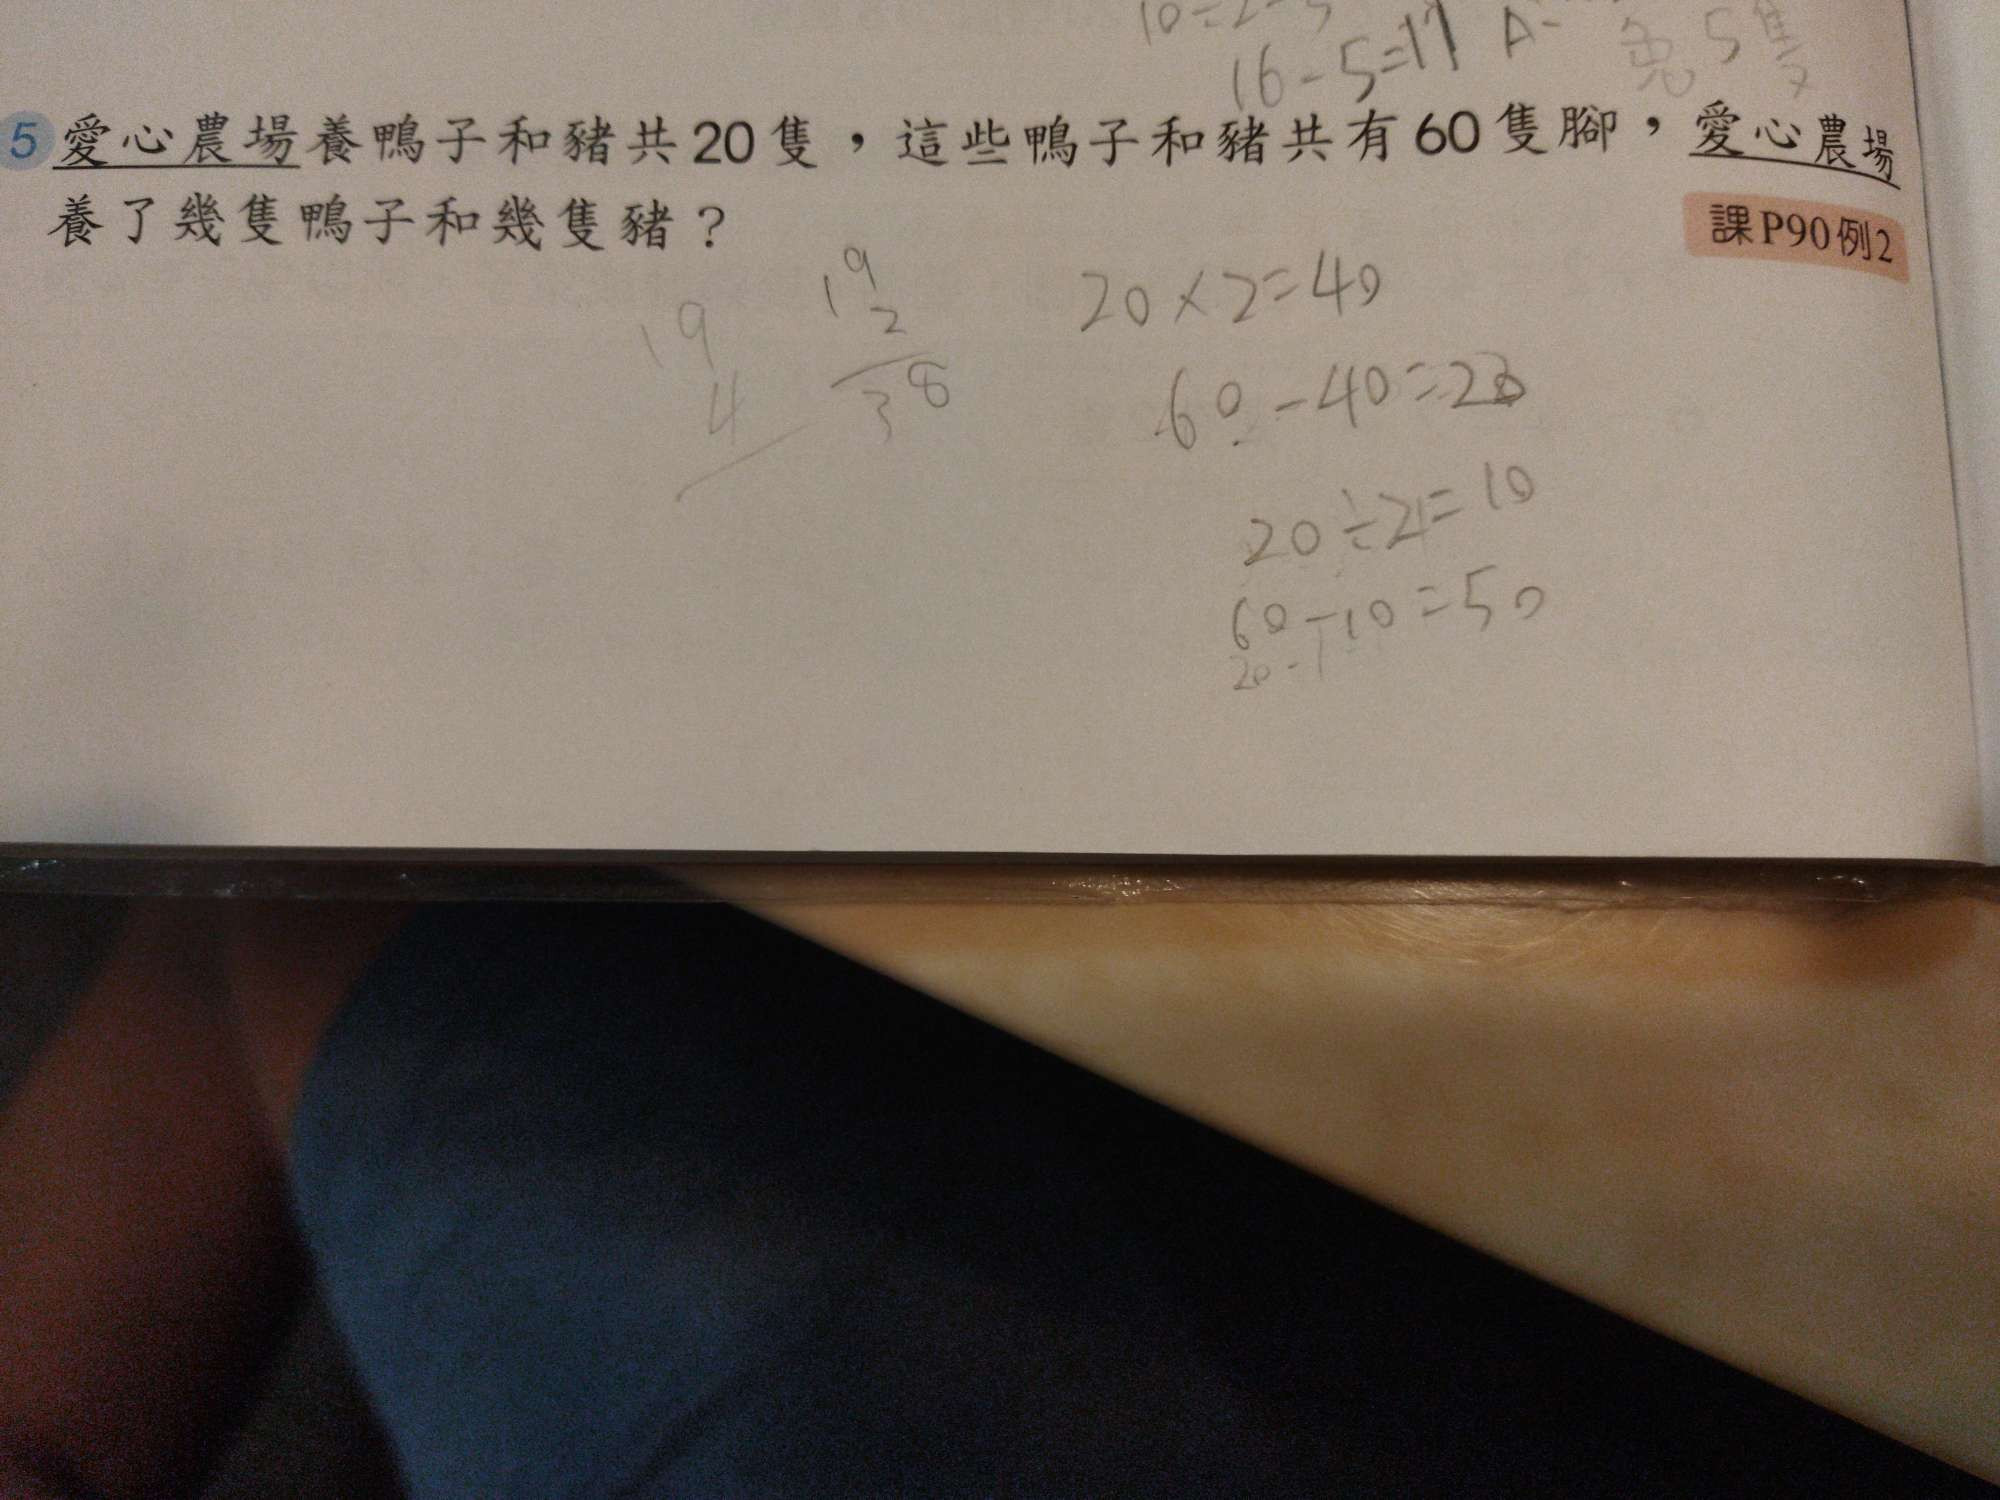 10÷2=5
16-5=11 A:
兔5隻
5 愛心農場養鴨子和豬共20隻，這些鴨子和豬共有60隻腳，愛心農場
養了幾隻鴨子和幾隻豬？
課P90例2
19
4
19
2
38
20×2=40
60-40=20
20÷2=10
60-10=50
20-1